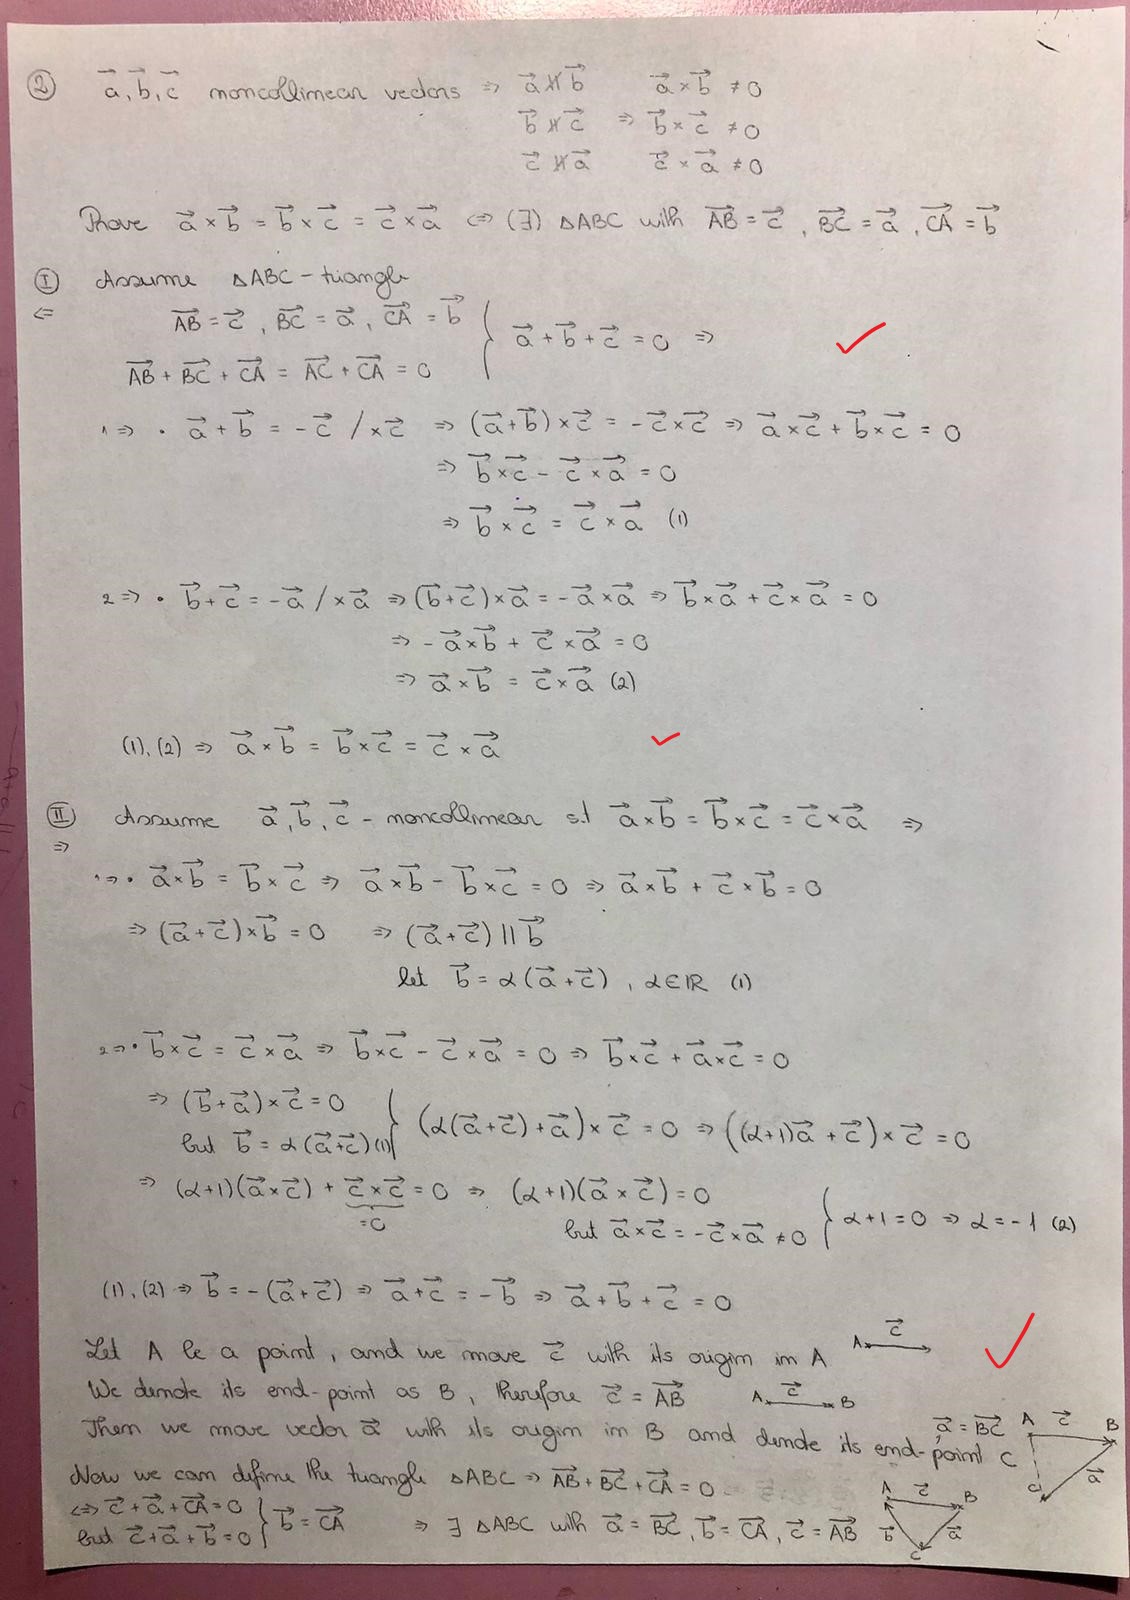 ② a⃗, b⃗, c⃗ noncollinear vectors ⇒ a⃗ ∦ b⃗ a⃗ × b⃗ ≠ 0
b⃗ ∦ c⃗ ⇒ b⃗ × c⃗ ≠ 0
c⃗ ∦ a⃗ c⃗ × a⃗ ≠ 0
Prove a⃗ × b⃗ = b⃗ × c⃗ = c⃗ × a⃗ ⇔ (∃) ΔABC with AB⃗ = c⃗, BC⃗ = a⃗, CA⃗ = b⃗
Ⓘ Assume ΔABC - triangle
⇐ AB⃗ = c⃗, BC⃗ = a⃗, CA⃗ = b⃗ } a⃗ + b⃗ + c⃗ = 0 ⇒
AB⃗ + BC⃗ + CA⃗ = AC⃗ + CA⃗ = 0
1 ⇒ • a⃗ + b⃗ = -c⃗ / × c⃗ ⇒ (a⃗ + b⃗) × c⃗ = -c⃗ × c⃗ ⇒ a⃗ × c⃗ + b⃗ × c⃗ = 0
⇒ b⃗ × c⃗ - c⃗ × a⃗ = 0
⇒ b⃗ × c⃗ = c⃗ × a⃗ (1)
2 ⇒ • b⃗ + c⃗ = -a⃗ / × a⃗ ⇒ (b⃗ + c⃗) × a⃗ = -a⃗ × a⃗ ⇒ b⃗ × a⃗ + c⃗ × a⃗ = 0
⇒ -a⃗ × b⃗ + c⃗ × a⃗ = 0
⇒ a⃗ × b⃗ = c⃗ × a⃗ (2)
(1), (2) ⇒ a⃗ × b⃗ = b⃗ × c⃗ = c⃗ × a⃗
Ⅱ Assume a⃗, b⃗, c⃗ - noncollinear s.t a⃗ × b⃗ = b⃗ × c⃗ = c⃗ × a⃗ ⇒
⇒
1 ⇒ • a⃗ × b⃗ = b⃗ × c⃗ ⇒ a⃗ × b⃗ - b⃗ × c⃗ = 0 ⇒ a⃗ × b⃗ + c⃗ × b⃗ = 0
⇒ (a⃗ + c⃗) × b⃗ = 0 ⇒ (a⃗ + c⃗) || b⃗
let b⃗ = α(a⃗ + c⃗), α∈ℝ (1)
2 ⇒ • b⃗ × c⃗ = c⃗ × a⃗ ⇒ b⃗ × c⃗ - c⃗ × a⃗ = 0 ⇒ b⃗ × c⃗ + a⃗ × c⃗ = 0
⇒ (b⃗ + a⃗) × c⃗ = 0 } (α(a⃗ + c⃗) + a⃗) × c⃗ = 0 ⇒ ((α+1)a⃗ + c⃗) × c⃗ = 0
but b⃗ = α(a⃗ + c⃗) (1)
⇒ (α+1)(a⃗ × c⃗) + c⃗ × c⃗ = 0 ⇒ (α+1)(a⃗ × c⃗) = 0 } α+1 = 0 ⇒ α = -1 (2)
=0 but a⃗ × c⃗ = -c⃗ × a⃗ ≠ 0
(1), (2) ⇒ b⃗ = -(a⃗ + c⃗) ⇒ a⃗ + c⃗ = -b⃗ ⇒ a⃗ + b⃗ + c⃗ = 0
Let A be a point, and we move c⃗ with its origin in A A c⃗
We denote its end-point as B, therefore c⃗ = AB⃗ A c⃗ B
Then we move vector a⃗ with its origin in B and denote its end-point C a⃗ = BC⃗ A c⃗ B a⃗ C
Now we can define the triangle ΔABC ⇒ AB⃗ + BC⃗ + CA⃗ = 0
⇔ c⃗ + a⃗ + CA⃗ = 0 } b⃗ = CA⃗ ⇒ ∃ ΔABC with a⃗ = BC⃗, b⃗ = CA⃗, c⃗ = AB⃗ A c⃗ B b⃗ a⃗ C
but c⃗ + a⃗ + b⃗ = 0